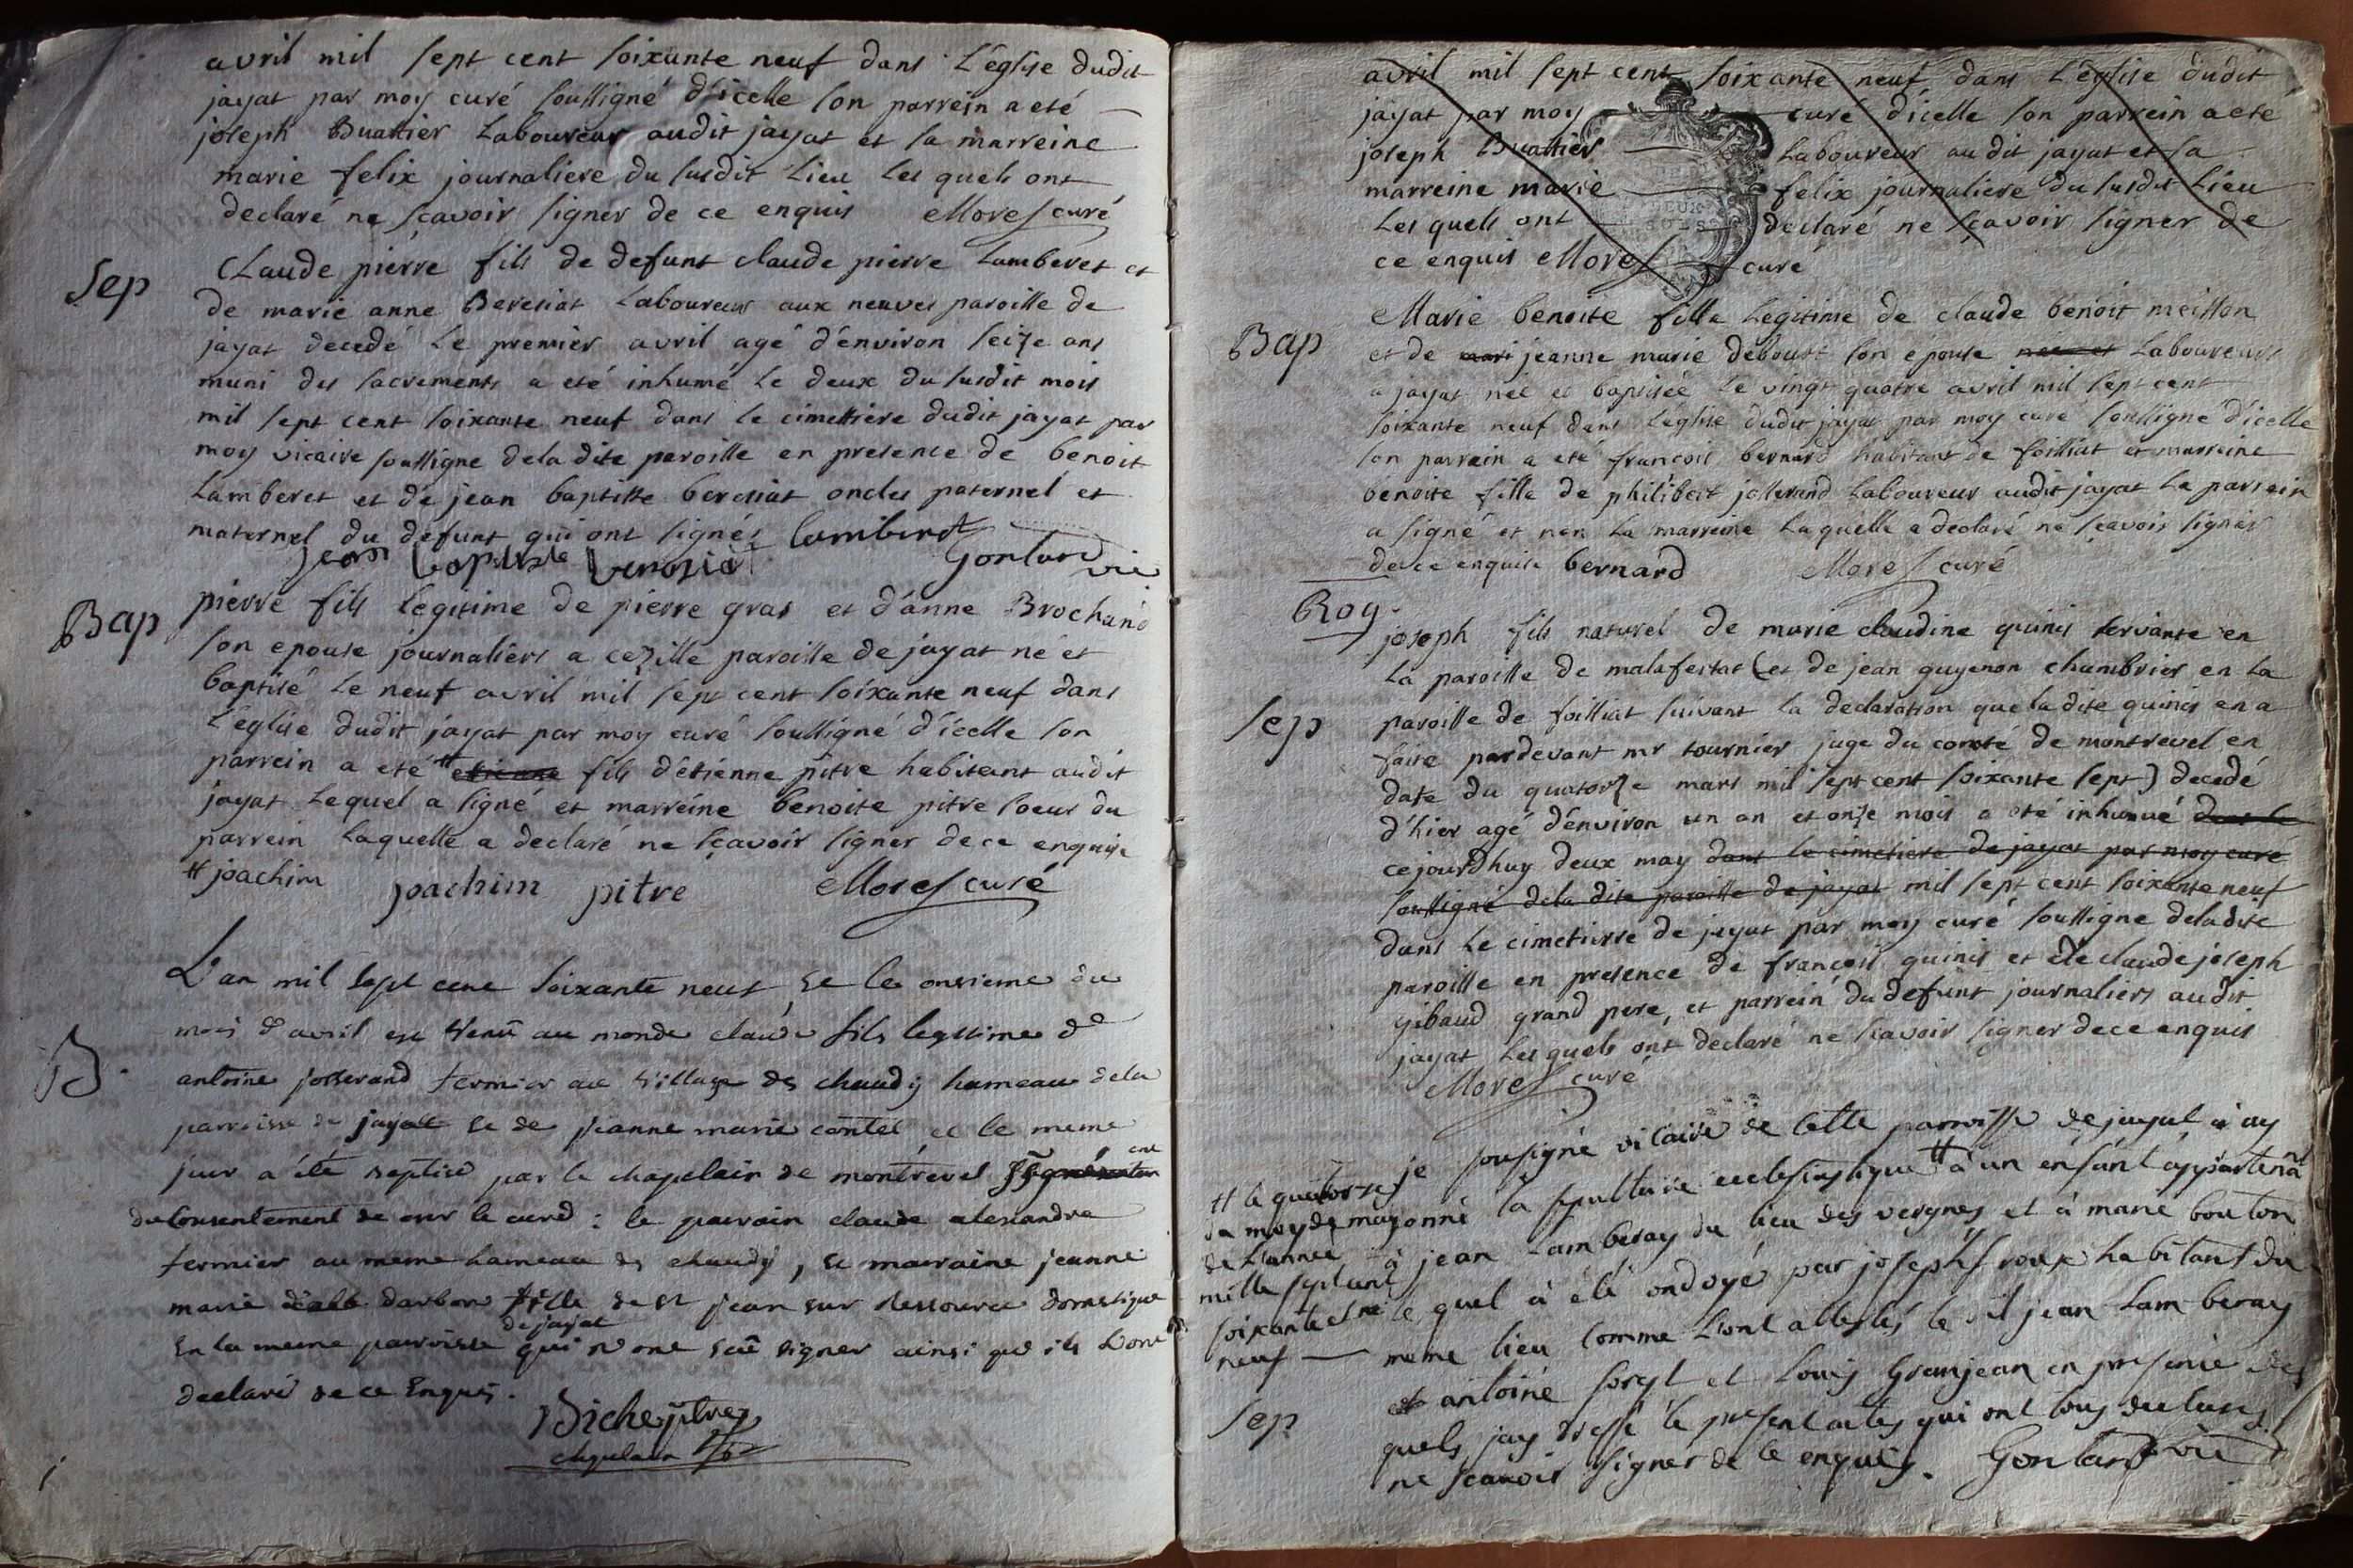 avril mil sept cent soixante neuf dans L'église dudit
jayat par moy curé soussigné d'icelle son parrein a eté
joseph Buattier Laboureur audit jayat et sa marreine
marie felix journaliere du susdit Lieu Les quels ont
declaré ne sçavoir signer de ce enquis Morel curé
Sep
Claude pierre fils de defunt claude pierre Lamberet et
de marie anne Beresiat Laboureurs aux neuves paroisse de
jayat decedé Le premier avril agé d'environ seize ans
muni des sacrements a eté inhumé Le deux du susdit mois
mil sept cent soixante neuf dans le cimettiere dudit jayat par
moy vicaire soussigne dela dite paroisse en presence de benoit
Lamberet et de jean baptiste beresiat oncles paternel et
maternel du defunt qui ont signés lamberet
jean baptiste Gontard vic
Bap
pierre fils legitime de pierre gras et d'anne Brochand
son epouse journaliers a cezille paroisse de jayat né et
baptisé Le neuf avril mil sept cent soixante neuf dans
L'église dudit jayat par moy curé soussigné d'icelle son
parrein a eté # etienne fils d'etienne pitre habitant audit
jayat Lequel a signé et marreine benoite pitre soeur du
parrein Laquelle a declaré ne sçavoir signer de ce enquise
# joachim joachim pitre Morel curé
L'an mil sept cent soixante neuf et le onzieme du
mois d'avril est venû au monde claude fils legitime de
B.
antoine josserand fermier au village des chaudy hameau dela
parroisse de jayat et de jeanne marie contet et le meme
jour a été baptisé par le chapelain de montrevel
du Consentement de mr le curé : le parrain claude alexandre
fermier au meme hameau des chaudy, et marraine jeanne
marie darbon fille de st jean sur Ressouze domestique
de jayat
En la meme parroisse qui n'ont scû signer ainsi qu'ils L'ont
declaré de ce Enquis.
Biche ptre
chapelain
avril mil sept cent soixante neuf dans L'église dudit
jayat par moy curé d'icelle son parrein a eté
joseph Buattier Laboureur audit jayat et sa
marreine marie felix journaliere du susdit Lieu
Les quels ont declaré ne sçavoir signer de
ce enquis Morel curé
DEUX
SOLS
Bap
Marie benoite fille Legitime de claude benoit meisson
et de mari jeanne marie deboust son epouse née et Laboureurs
a jayat née et baptisée Le vingt quatre avril mil sept cent
soixante neuf dans L'eglise dudit jayat par moy curé soussigné d'icelle
son parrein a eté françois bernard habitant de foissiat et marreine
benoite fille de philibert josserand Laboureur audit jayat Le parrein
a signé et non La marreine Laquelle a declaré ne sçavoir signer
de ce enquise bernard Morel curé
Roy.
joseph fils naturel de marie claudine quinis servante en
La paroisse de malafertat (et de jean guyenon chambrier en La
Sep
paroisse de foissiat suivant la declaration que la dite quinis en a
faite pardevant mr tournier juge du comté de montrevel en
date du quatorze mars mil sept cent soixante sept) decedé
d'hier agé d'environ un an et onze mois a eté inhumé dans le
cejourdhuy deux may dans le cimetiere de jayat par moy curé
soussigné dela dite paroisse de jayat mil sept cent soixante neuf
dans Le cimetierre de jayat par moy curé soussigne deladite
paroisse en presence de françois quinis et de claude joseph
gibaud grand pere, et parrein du defunt journaliers audit
jayat Lesquels ont declaré ne sçavoir signer de ce enquis
Morel curé
je sousigné vicaire de cette parroisse de jayat ay
donné la sepulture ecclesiastique # à un enfant appartenant
# le quatorze
du moy de may
de L'année
mille sept cent
soixante et
neuf
à jean Lamberay du lieu des vergnes et à marie bouton
le quel à été ondoyé par joseph roux habitant du
meme lieu Comme L'ont attestés le dit jean Lamberay
Sep
et antoine et Louis Granjean en presence des
quels jay dressé le present actes qui ont tous declarés
ne scavoir signer de ce enquis. Gontard vic